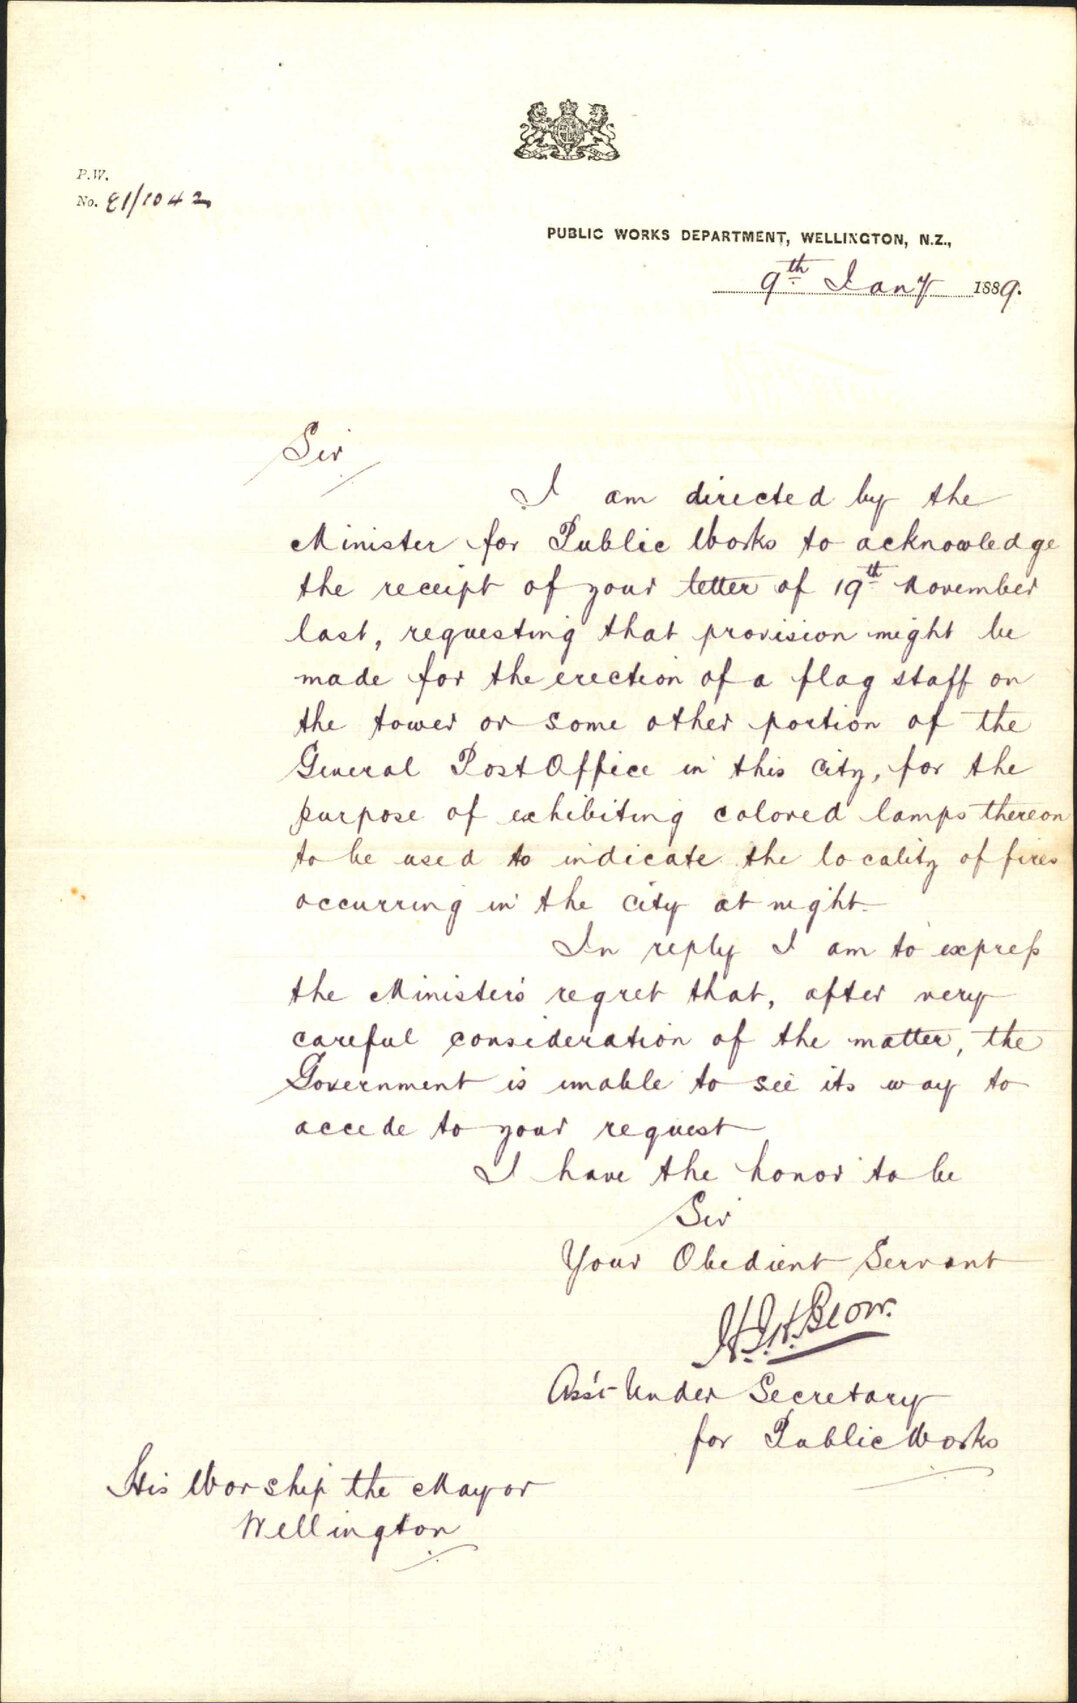 P.W.
No. 81/1042
PUBLIC WORKS DEPARTMENT, WELLINGTON, N.Z.,
9th Jany 1889.
Sir
I am directed by the
Minister for Public Works to acknowledge
the receipt of your letter of 19th November
last, requesting that provision might be
made for the erection of a flag staff on
the tower or some other portion of the
General Post Office in this City, for the
purpose of exhibiting colored lamps thereon
to be used to indicate the locality of fires
occurring in the City at night.
In reply I am to express
the Minister's regret that, after very
careful consideration of the matter, the
Government is unable to see its way to
accede to your request
I have the honor to be
Sir
Your Obedient Servant
H.J.H. Blow.
Ass't Under Secretary
for Public Works
His Worship the Mayor
Wellington